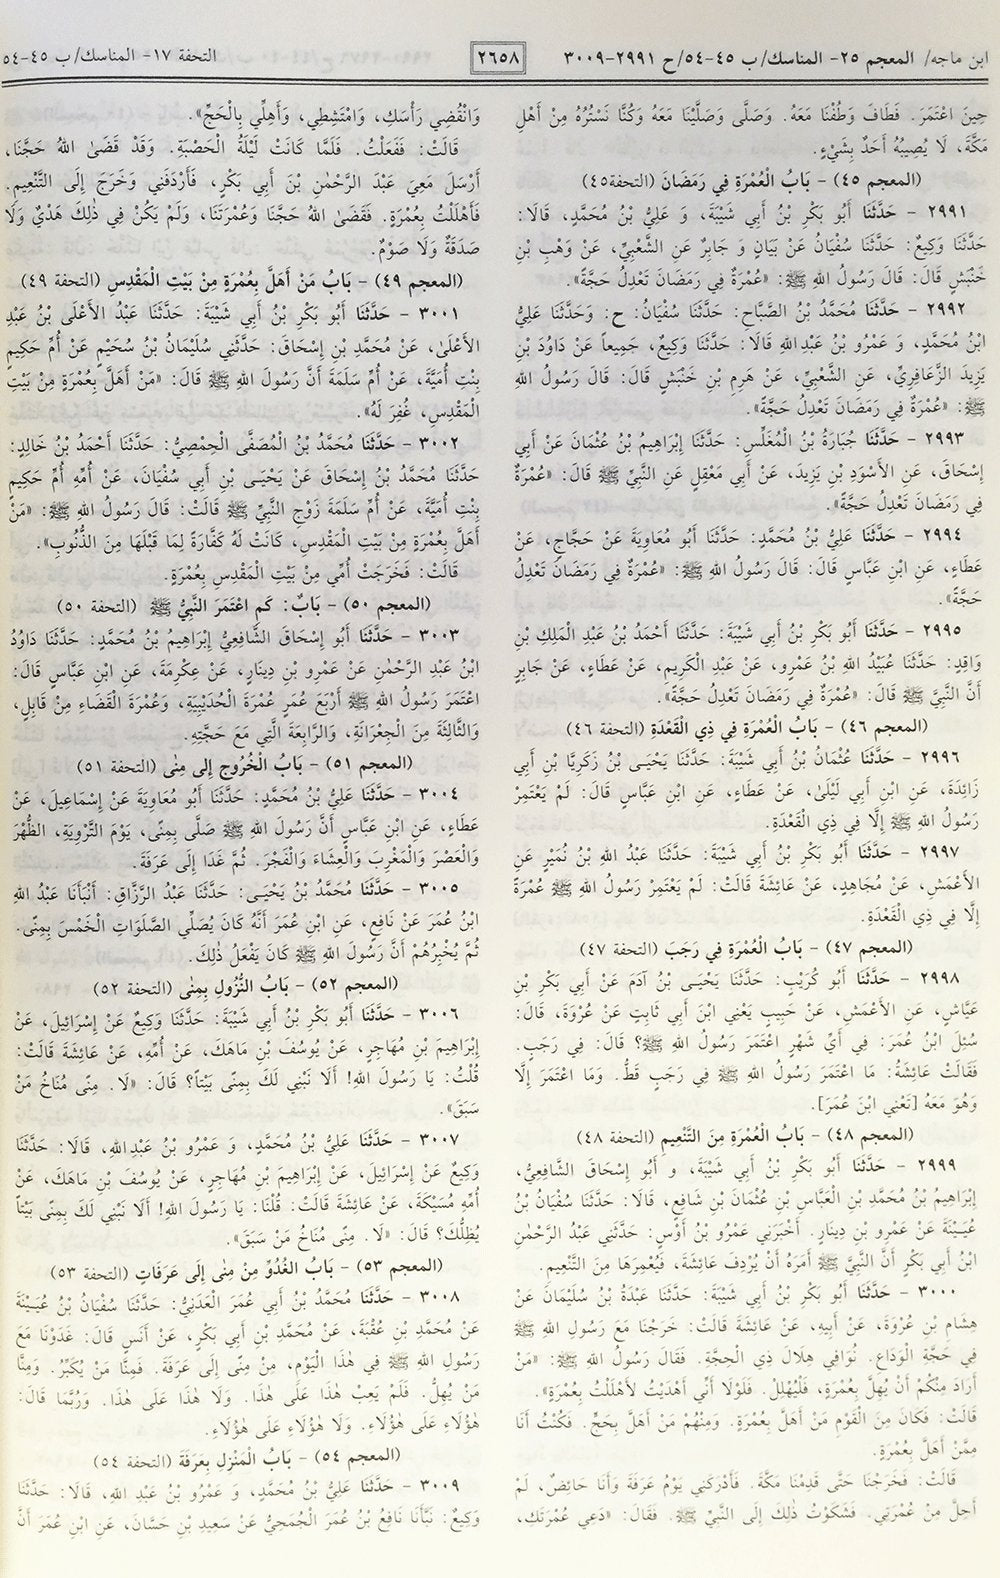 ابن ماجه/ المعجم ٢٥- المناسك/ ب ٤٥-٥٤/ح ٢٩٩١-٣٠٠٩
٢٦٥٨
التحفة ١٧- المناسك/ ب ٤٥-٥٤
حِينَ اعْتَمَرَ. فَطَافَ وَطُفْنَا مَعَهُ. وَصَلَّى وَصَلَّيْنَا مَعَهُ وَكُنَّا نَسْتُرُهُ مِنْ أَهْلِ
مَكَّةَ، لَا يُصِيبُهُ أَحَدٌ بِشَيْءٍ.
(المعجم ٤٥) - بَابُ الْعُمْرَةِ فِي رَمَضَانَ (التحفة٤٥)
٢٩٩١ - حَدَّثَنَا أَبُو بَكْرِ بْنُ أَبِي شَيْبَةَ، وَ عَلِيُّ بْنُ مُحَمَّدٍ، قَالَا:
حَدَّثَنَا وَكِيعٌ: حَدَّثَنَا سُفْيَانُ عَنْ بَيَانٍ وَ جَابِرٍ عَنِ الشَّعْبِيِّ، عَنْ وَهْبِ بْنِ
خَنْبَشٍ قَالَ: قَالَ رَسُولُ اللهِ ﷺ: «عُمْرَةٌ فِي رَمَضَانَ تَعْدِلُ حَجَّةً».
٢٩٩٢ - حَدَّثَنَا مُحَمَّدُ بْنُ الصَّبَّاحِ: حَدَّثَنَا سُفْيَانُ: ح: وَحَدَّثَنَا عَلِيُّ
ابْنُ مُحَمَّدٍ، وَ عَمْرُو بْنُ عَبْدِ اللهِ قَالَا: حَدَّثَنَا وَكِيعٌ، جَمِيعاً عَنْ دَاوُدَ بْنِ
يَزِيدَ الزَّعَافِرِيِّ، عَنِ الشَّعْبِيِّ، عَنْ هَرِمِ بْنِ خَنْبَشٍ قَالَ: قَالَ رَسُولُ اللهِ
ﷺ: «عُمْرَةٌ فِي رَمَضَانَ تَعْدِلُ حَجَّةً».
٢٩٩٣ - حَدَّثَنَا جُبَارَةُ بْنُ الْمُغَلِّسِ: حَدَّثَنَا إِبْرَاهِيمُ بْنُ عُثْمَانَ عَنْ أَبِي
إِسْحَاقَ، عَنِ الأَسْوَدِ بْنِ يَزِيدَ، عَنْ أَبِي مَعْقِلٍ عَنِ النَّبِيِّ ﷺ قَالَ: «عُمْرَةٌ
فِي رَمَضَانَ تَعْدِلُ حَجَّةً».
٢٩٩٤ - حَدَّثَنَا عَلِيُّ بْنُ مُحَمَّدٍ: حَدَّثَنَا أَبُو مُعَاوِيَةَ عَنْ حَجَّاجٍ، عَنْ
عَطَاءٍ، عَنِ ابْنِ عَبَّاسٍ قَالَ: قَالَ رَسُولُ اللهِ ﷺ: «عُمْرَةٌ فِي رَمَضَانَ تَعْدِلُ
حَجَّةً».
٢٩٩٥ - حَدَّثَنَا أَبُو بَكْرِ بْنُ أَبِي شَيْبَةَ: حَدَّثَنَا أَحْمَدُ بْنُ عَبْدِ الْمَلِكِ بْنِ
وَاقِدٍ: حَدَّثَنَا عُبَيْدُ اللهِ بْنُ عَمْرٍو، عَنْ عَبْدِ الْكَرِيمِ، عَنْ عَطَاءٍ، عَنْ جَابِرٍ
أَنَّ النَّبِيَّ ﷺ قَالَ: «عُمْرَةٌ فِي رَمَضَانَ تَعْدِلُ حَجَّةً».
(المعجم ٤٦) - بَابُ الْعُمْرَةِ فِي ذِي الْقَعْدَةِ (التحفة ٤٦)
٢٩٩٦ - حَدَّثَنَا عُثْمَانُ بْنُ أَبِي شَيْبَةَ: حَدَّثَنَا يَحْيَـى بْنُ زَكَرِيَّا بْنِ أَبِي
زَائِدَةَ، عَنِ ابْنِ أَبِي لَيْلَىٰ، عَنْ عَطَاءٍ، عَنِ ابْنِ عَبَّاسٍ قَالَ: لَمْ يَعْتَمِرْ
رَسُولُ اللهِ ﷺ إِلَّا فِي ذِي الْقَعْدَةِ.
٢٩٩٧ - حَدَّثَنَا أَبُو بَكْرِ بْنُ أَبِي شَيْبَةَ: حَدَّثَنَا عَبْدُ اللهِ بْنُ نُمَيْرٍ عَنِ
الأَعْمَشِ، عَنْ مُجَاهِدٍ، عَنْ عَائِشَةَ قَالَتْ: لَمْ يَعْتَمِرْ رَسُولُ اللهِ ﷺ عُمْرَةً
إِلَّا فِي ذِي الْقَعْدَةِ.
(المعجم ٤٧) - بَابُ الْعُمْرَةِ فِي رَجَبَ (التحفة ٤٧)
٢٩٩٨ - حَدَّثَنَا أَبُو كُرَيْبٍ: حَدَّثَنَا يَحْيَـى بْنُ آدَمَ عَنْ أَبِي بَكْرِ بْنِ
عَيَّاشٍ، عَنِ الأَعْمَشِ، عَنْ حَبِيبٍ يَعْنِي ابْنَ أَبِي ثَابِتٍ عَنْ عُرْوَةَ، قَالَ:
سُئِلَ ابْنُ عُمَرَ: فِي أَيِّ شَهْرٍ اعْتَمَرَ رَسُولُ اللهِ ﷺ؟ قَالَ: فِي رَجَبٍ.
فَقَالَتْ عَائِشَةُ: مَا اعْتَمَرَ رَسُولُ اللهِ ﷺ فِي رَجَبٍ قَطُّ. وَمَا اعْتَمَرَ إِلَّا
وَهُوَ مَعَهُ [تَعْنِي ابْنَ عُمَرَ].
(المعجم ٤٨) - بَابُ الْعُمْرَةِ مِنَ التَّنْعِيمِ (التحفة ٤٨)
٢٩٩٩ - حَدَّثَنَا أَبُو بَكْرِ بْنُ أَبِي شَيْبَةَ، و أَبُو إِسْحَاقَ الشَّافِعِيُّ،
إِبْرَاهِيمُ بْنُ مُحَمَّدِ بْنِ الْعَبَّاسِ بْنِ عُثْمَانَ بْنِ شَافِعٍ، قَالَا: حَدَّثَنَا سُفْيَانُ بْنُ
عُيَـيْنَةَ عَنْ عَمْرِو بْنِ دِينَارٍ. أَخْبَرَنِي عَمْرُو بْنُ أَوْسٍ: حَدَّثَنِي عَبْدُ الرَّحْمٰنِ
ابْنُ أَبِي بَكْرٍ أَنَّ النَّبِيَّ ﷺ أَمَرَهُ أَنْ يُرْدِفَ عَائِشَةَ، فَيُعْمِرَهَا مِنَ التَّنْعِيمِ.
٣٠٠٠ - حَدَّثَنَا أَبُو بَكْرِ بْنُ أَبِي شَيْبَةَ: حَدَّثَنَا عَبْدَةُ بْنُ سُلَيْمَانَ عَنْ
هِشَامِ بْنِ عُرْوَةَ، عَنْ أَبِيهِ، عَنْ عَائِشَةَ قَالَتْ: خَرَجْنَا مَعَ رَسُولِ اللهِ ﷺ
فِي حَجَّةِ الْوَدَاعِ. نُوَافِي هِلَالَ ذِي الْحِجَّةِ. فَقَالَ رَسُولُ اللهِ ﷺ: «مَنْ
أَرَادَ مِنْكُمْ أَنْ يُهِلَّ بِعُمْرَةٍ، فَلْيُهْلِلْ. فَلَوْلَا أَنِّي أَهْدَيْتُ لأَهْلَلْتُ بِعُمْرَةٍ».
قَالَتْ: فَكَانَ مِنَ الْقَوْمِ مَنْ أَهَلَّ بِعُمْرَةٍ. وَمِنْهُمْ مَنْ أَهَلَّ بِحَجٍّ. فَكُنْتُ أَنَا
مِمَّنْ أَهَلَّ بِعُمْرَةٍ.
قَالَتْ: فَخَرَجْنَا حَتَّى قَدِمْنَا مَكَّةَ. فَأَدْرَكَنِي يَوْمُ عَرَفَةَ وَأَنَا حَائِضٌ، لَمْ
أَحِلَّ مِنْ عُمْرَتِي. فَشَكَوْتُ ذٰلِكَ إِلَى النَّبِيِّ ﷺ. فَقَالَ: «دَعِي عُمْرَتَكِ،
وَانْقُضِي رَأْسَكِ، وَامْتَشِطِي، وَأَهِلِّي بِالْحَجِّ».
قَالَتْ: فَفَعَلْتُ. فَلَمَّا كَانَتْ لَيْلَةُ الْحَصْبَةِ. وَقَدْ قَضَى اللهُ حَجَّنَا،
أَرْسَلَ مَعِيَ عَبْدَ الرَّحْمٰنِ بْنَ أَبِي بَكْرٍ، فَأَرْدَفَنِي وَخَرَجَ إِلَى التَّنْعِيمِ.
فَأَهْلَلْتُ بِعُمْرَةٍ. فَقَضَى اللهُ حَجَّنَا وَعُمْرَتَنَا، وَلَمْ يَكُنْ فِي ذٰلِكَ هَدْيٌ وَلَا
صَدَقَةٌ وَلَا صَوْمٌ.
(المعجم ٤٩) - بَابُ مَنْ أَهَلَّ بِعُمْرَةٍ مِنْ بَيْتِ الْمَقْدِسِ (التحفة ٤٩)
٣٠٠١ - حَدَّثَنَا أَبُو بَكْرِ بْنُ أَبِي شَيْبَةَ: حَدَّثَنَا عَبْدُ الأَعْلَى بْنُ عَبْدِ
الأَعْلَى، عَنْ مُحَمَّدِ بْنِ إِسْحَاقَ: حَدَّثَنِي سُلَيْمَانُ بْنُ سُحَيْمٍ عَنْ أُمِّ حَكِيمٍ
بِنْتِ أُمَيَّةَ، عَنْ أُمِّ سَلَمَةَ أَنَّ رَسُولَ اللهِ ﷺ قَالَ: «مَنْ أَهَلَّ بِعُمْرَةٍ مِنْ بَيْتِ
الْمَقْدِسِ، غُفِرَ لَهُ».
٣٠٠٢ - حَدَّثَنَا مُحَمَّدُ بْنُ الْمُصَفَّى الْحِمْصِيُّ: حَدَّثَنَا أَحْمَدُ بْنُ خَالِدٍ:
حَدَّثَنَا مُحَمَّدُ بْنُ إِسْحَاقَ عَنْ يَحْيَـى بْنِ أَبِي سُفْيَانَ، عَنْ أُمِّهِ أُمِّ حَكِيمٍ
بِنْتِ أُمَيَّةَ، عَنْ أُمِّ سَلَمَةَ زَوْجِ النَّبِيِّ ﷺ قَالَتْ: قَالَ رَسُولُ اللهِ ﷺ: «مَنْ
أَهَلَّ بِعُمْرَةٍ مِنْ بَيْتِ الْمَقْدِسِ، كَانَتْ لَهُ كَفَّارَةً لِمَا قَبْلَهَا مِنَ الذُّنُوبِ».
قَالَتْ: فَخَرَجَتْ أُمِّي مِنْ بَيْتِ الْمَقْدِسِ بِعُمْرَةٍ.
(المعجم ٥٠) - بَابٌ: كَم اعْتَمَرَ النَّبِيُّ ﷺ (التحفة ٥٠)
٣٠٠٣ - حَدَّثَنَا أَبُو إِسْحَاقَ الشَّافِعِيُّ إِبْرَاهِيمُ بْنُ مُحَمَّدٍ: حَدَّثَنَا دَاوُدُ
ابْنُ عَبْدِ الرَّحْمٰنِ عَنْ عَمْرِو بْنِ دِينَارٍ، عَنْ عِكْرِمَةَ، عَنِ ابْنِ عَبَّاسٍ قَالَ:
اعْتَمَرَ رَسُولُ اللهِ ﷺ أَرْبَعَ عُمَرٍ عُمْرَةَ الْحُدَيْبِيَةِ، وَعُمْرَةَ الْقَضَاءِ مِنْ قَابِلٍ،
وَالثَّالِثَةَ مِنَ الْجِعْرَانَةِ، وَالرَّابِعَةَ الَّتِي مَعَ حَجَّتِهِ.
(المعجم ٥١) - بَابُ الْخُرُوجِ إِلى مِنًى (التحفة ٥١)
٣٠٠٤ - حَدَّثَنَا عَلِيُّ بْنُ مُحَمَّدٍ: حَدَّثَنَا أَبُو مُعَاوِيَةَ عَنْ إِسْمَاعِيلَ، عَنْ
عَطَاءٍ، عَنِ ابْنِ عَبَّاسٍ أَنَّ رَسُولَ اللهِ ﷺ صَلَّى بِمِنًى، يَوْمَ التَّرْوِيَةِ، الظُّهْرَ
وَالْعَصْرَ وَالْمَغْرِبَ وَالْعِشَاءَ وَالْفَجْرَ. ثُمَّ غَدَا إِلَى عَرَفَةَ.
٣٠٠٥ - حَدَّثَنَا مُحَمَّدُ بْنُ يَحْيَـى: حَدَّثَنَا عَبْدُ الرَّزَّاقِ: أَنْبَأَنَا عَبْدُ اللهِ
ابْنُ عُمَرَ عَنْ نَافِعٍ، عَنِ ابْنِ عُمَرَ أَنَّهُ كَانَ يُصَلِّي الصَّلَوَاتِ الْخَمْسَ بِمِنًى.
ثُمَّ يُخْبِرُهُمْ أَنَّ رَسُولَ اللهِ ﷺ كَانَ يَفْعَلُ ذٰلِكَ.
(المعجم ٥٢) - بَابُ النُّزُولِ بِمِنًى (التحفة ٥٢)
٣٠٠٦ - حَدَّثَنَا أَبُو بَكْرِ بْنُ أَبِي شَيْبَةَ: حَدَّثَنَا وَكِيعٌ عَنْ إِسْرَائِيلَ، عَنْ
إِبْرَاهِيمَ بْنِ مُهَاجِرٍ، عَنْ يُوسُفَ بْنِ مَاهَكَ، عَنْ أُمِّهِ، عَنْ عَائِشَةَ قَالَتْ:
قُلْتُ: يَا رَسُولَ اللهِ! أَلَا نَبْنِي لَكَ بِمِنًى بَيْتاً؟ قَالَ: «لَا. مِنًى مُنَاخُ مَنْ
سَبَقَ».
٣٠٠٧ - حَدَّثَنَا عَلِيُّ بْنُ مُحَمَّدٍ، وَ عَمْرُو بْنُ عَبْدِ اللهِ، قَالَا: حَدَّثَنَا
وَكِيعٌ عَنْ إِسْرَائِيلَ، عَنْ إِبْرَاهِيمَ بْنِ مُهَاجِرٍ، عَنْ يُوسُفَ بْنِ مَاهَكَ، عَنْ
أُمِّهِ مُسَيْكَةَ، عَنْ عَائِشَةَ قَالَتْ: قُلْنَا: يَا رَسُولَ اللهِ! أَلَا نَبْنِي لَكَ بِمِنًى بَيْتاً
يُظِلُّكَ؟ قَالَ: «لَا. مِنًى مُنَاخُ مَنْ سَبَقَ».
(المعجم ٥٣) - بَابُ الْغُدُوِّ مِنْ مِنًى إِلَى عَرَفَاتٍ (التحفة ٥٣)
٣٠٠٨ - حَدَّثَنَا مُحَمَّدُ بْنُ أَبِي عُمَرَ الْعَدَنِيُّ: حَدَّثَنَا سُفْيَانُ بْنُ عُيَـيْنَةَ
عَنْ مُحَمَّدِ بْنِ عُقْبَةَ، عَنْ مُحَمَّدِ بْنِ أَبِي بَكْرٍ، عَنْ أَنَسٍ قَالَ: غَدَوْنَا مَعَ
رَسُولِ اللهِ ﷺ فِي هٰذَا الْيَوْمِ، مِنْ مِنًى إِلَى عَرَفَةَ. فَمِنَّا مَنْ يُكَبِّرُ. وَمِنَّا
مَنْ يُهِلُّ. فَلَمْ يَعِبْ هٰذَا عَلَى هٰذَا. وَلَا هٰذَا عَلَى هٰذَا. وَرُبَّمَا قَالَ:
هٰؤُلَاءِ عَلَى هٰؤُلَاءِ. وَلَا هٰؤُلَاءِ عَلَى هٰؤُلَاءِ.
(المعجم ٥٤) - بَابُ الْمَنْزِلِ بِعَرَفَةَ (التحفة ٥٤)
٣٠٠٩ - حَدَّثَنَا عَلِيُّ بْنُ مُحَمَّدٍ، وَ عَمْرُو بْنُ عَبْدِ اللهِ، قَالَا: حَدَّثَنَا
وَكِيعٌ: نَبَّأَنَا نَافِعُ بْنُ عُمَرَ الْجُمَحِيُّ عَنْ سَعِيدِ بْنِ حَسَّانَ، عَنِ ابْنِ عُمَرَ أَنَّ